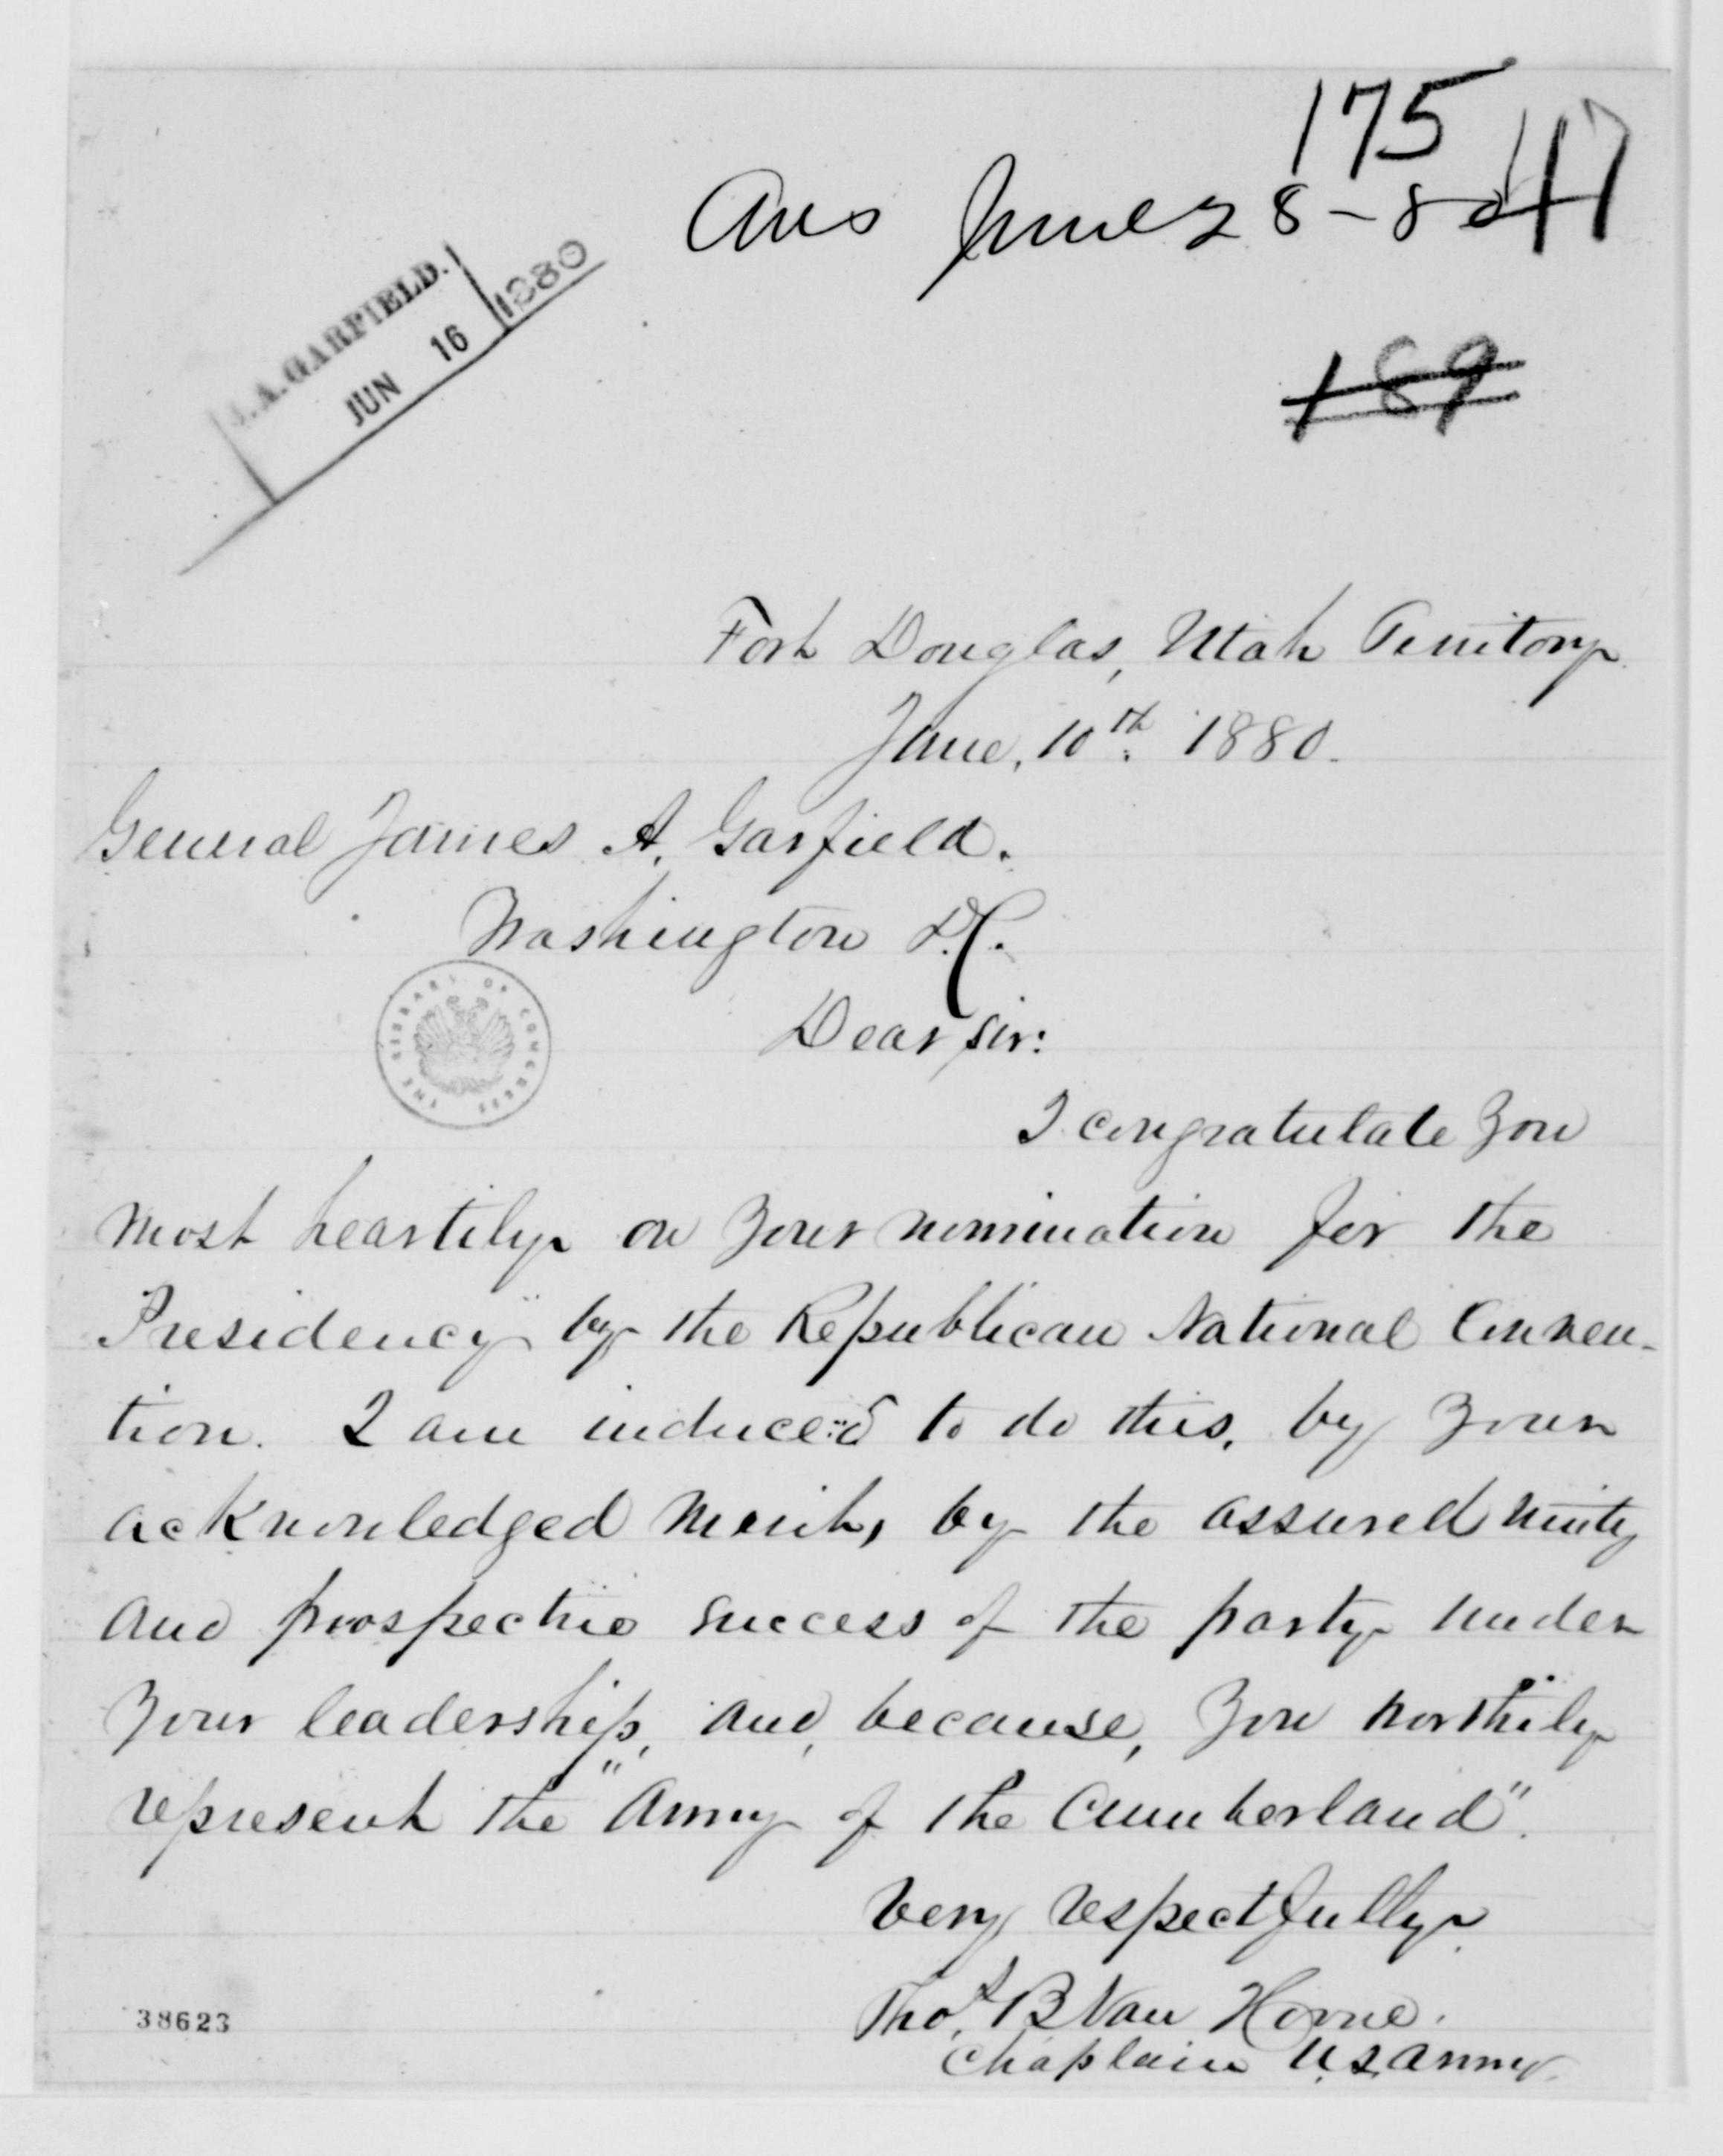 175
Ans June 28-80 117
J. A. GARFIELD.
JUN 16 1880
189
Fort Douglas, Utah Territory.
June, 10th 1880.
General James A. Garfield.
Washington D.C.
THE LIBRARY OF CONGRESS
Dear sir:
I congratulate you
most heartily on your nomination for the
Presidency by the Republican National Conven-
tion. I am induced to do this, by your
acknowledged merit, by the assured unity
and prospective success of the party under
your leadership, and, because, you worthily
represent the "Army of the Cumberland".
Very respectfully.
Thos. B Van Horne.
Chaplain U.S. Army.
38623